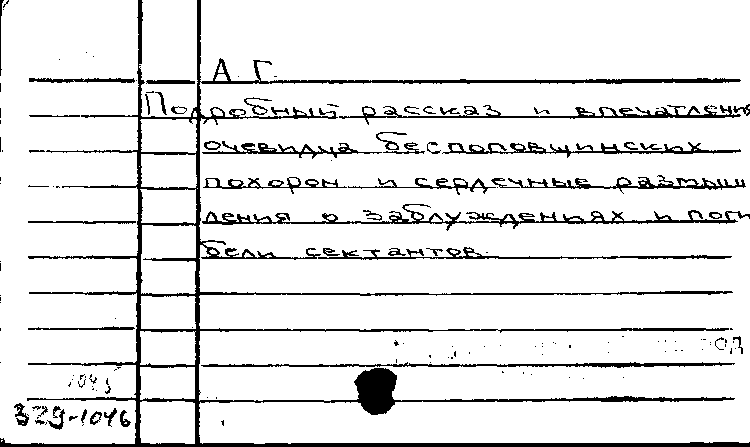 А Г
Подробный рассказ и впечатления
очевидца беспоповщинских
похорон и сердечные размыш
ления о заблуждениях и поги
бели сектантов.
1045
329-1046